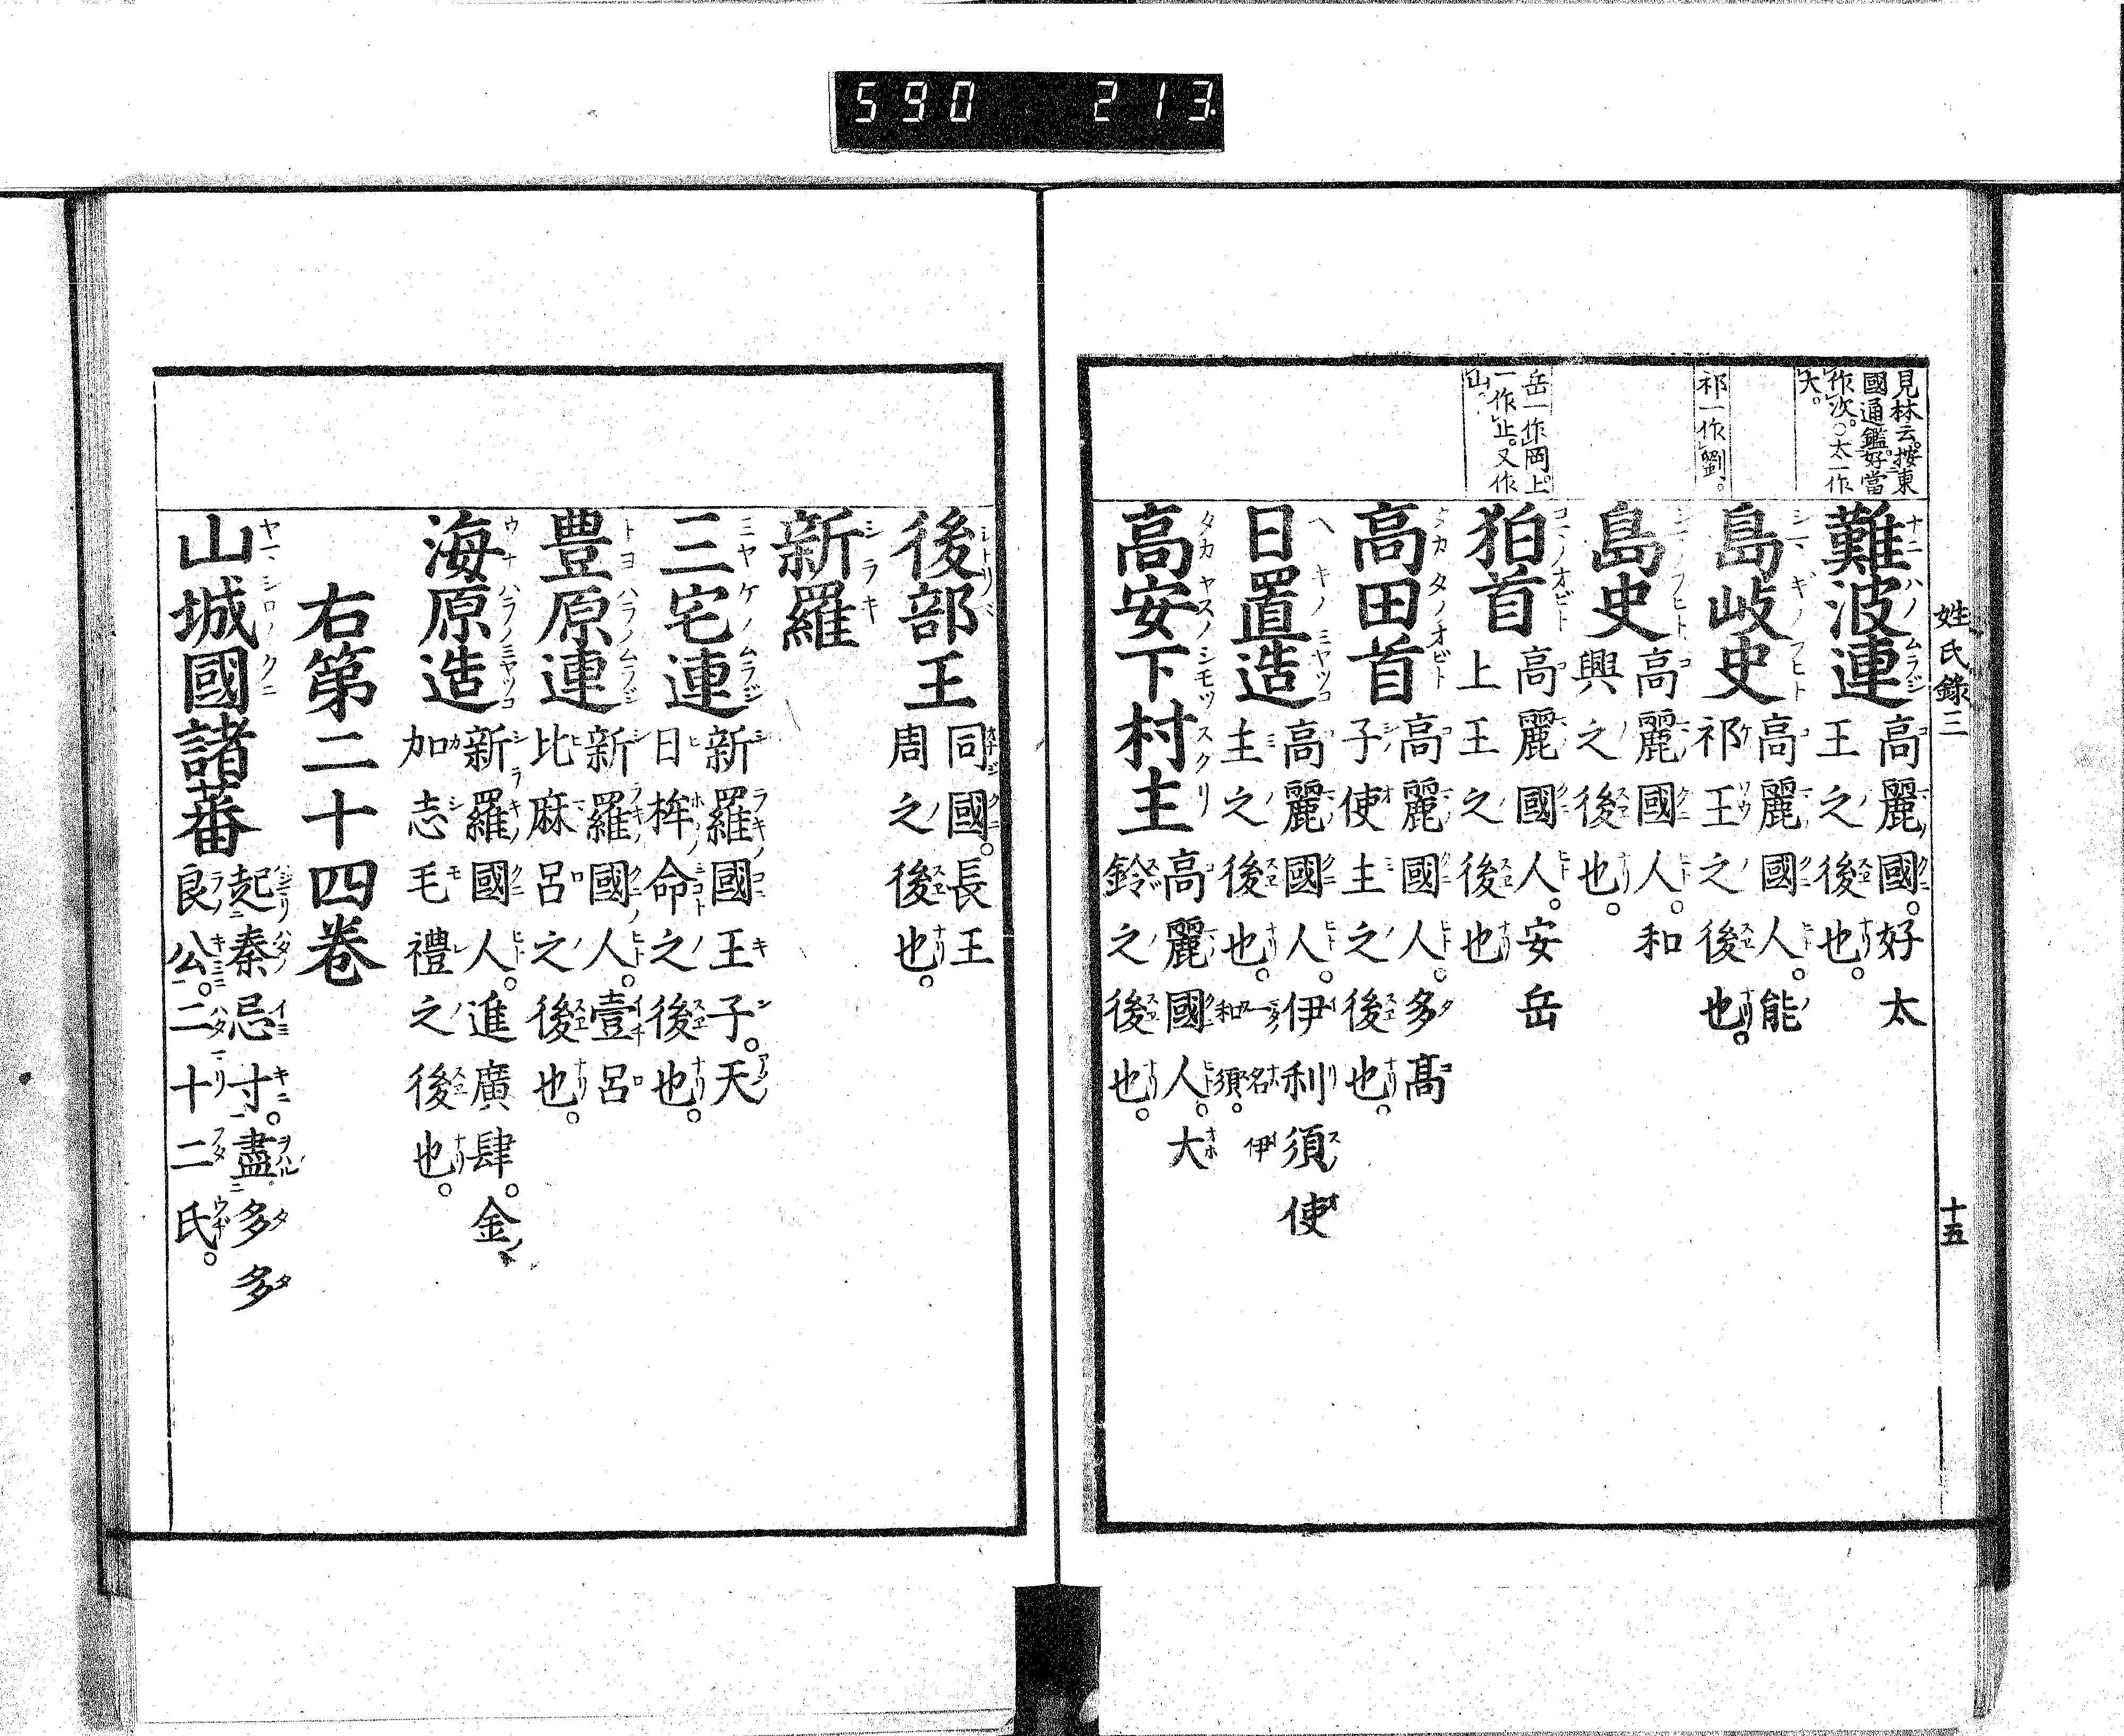 590 213
姓氏錄三
十五
見林云。按東
國通鑑。好當
作次。○太一作
大。
祁一作劉。
岳一作岡上。
一作止。又作
山。
難波連 高麗國。好太
王之後也。
島岐史 高麗國人。能
祁王之後也。
島史 高麗國人。和
興之後也。
狛首 高麗國人。安岳
上王之後也
高田首 高麗國人。多高
子使主之後也。
日置造 高麗國人。伊利須使
主之後也。一名伊
和須。
高安下村主 高麗國人。大
鈴之後也。
後部王 同國。長王
周之後也。
新羅
三宅連 新羅國王子。天
日桙命之後也。
豊原連 新羅國人。壹呂
比麻呂之後也。
海原造 新羅國人。進廣肆。金
加志毛禮之後也。
右第二十四卷
山城國諸蕃 起秦忌寸。盡多多
良公。二十二氏。